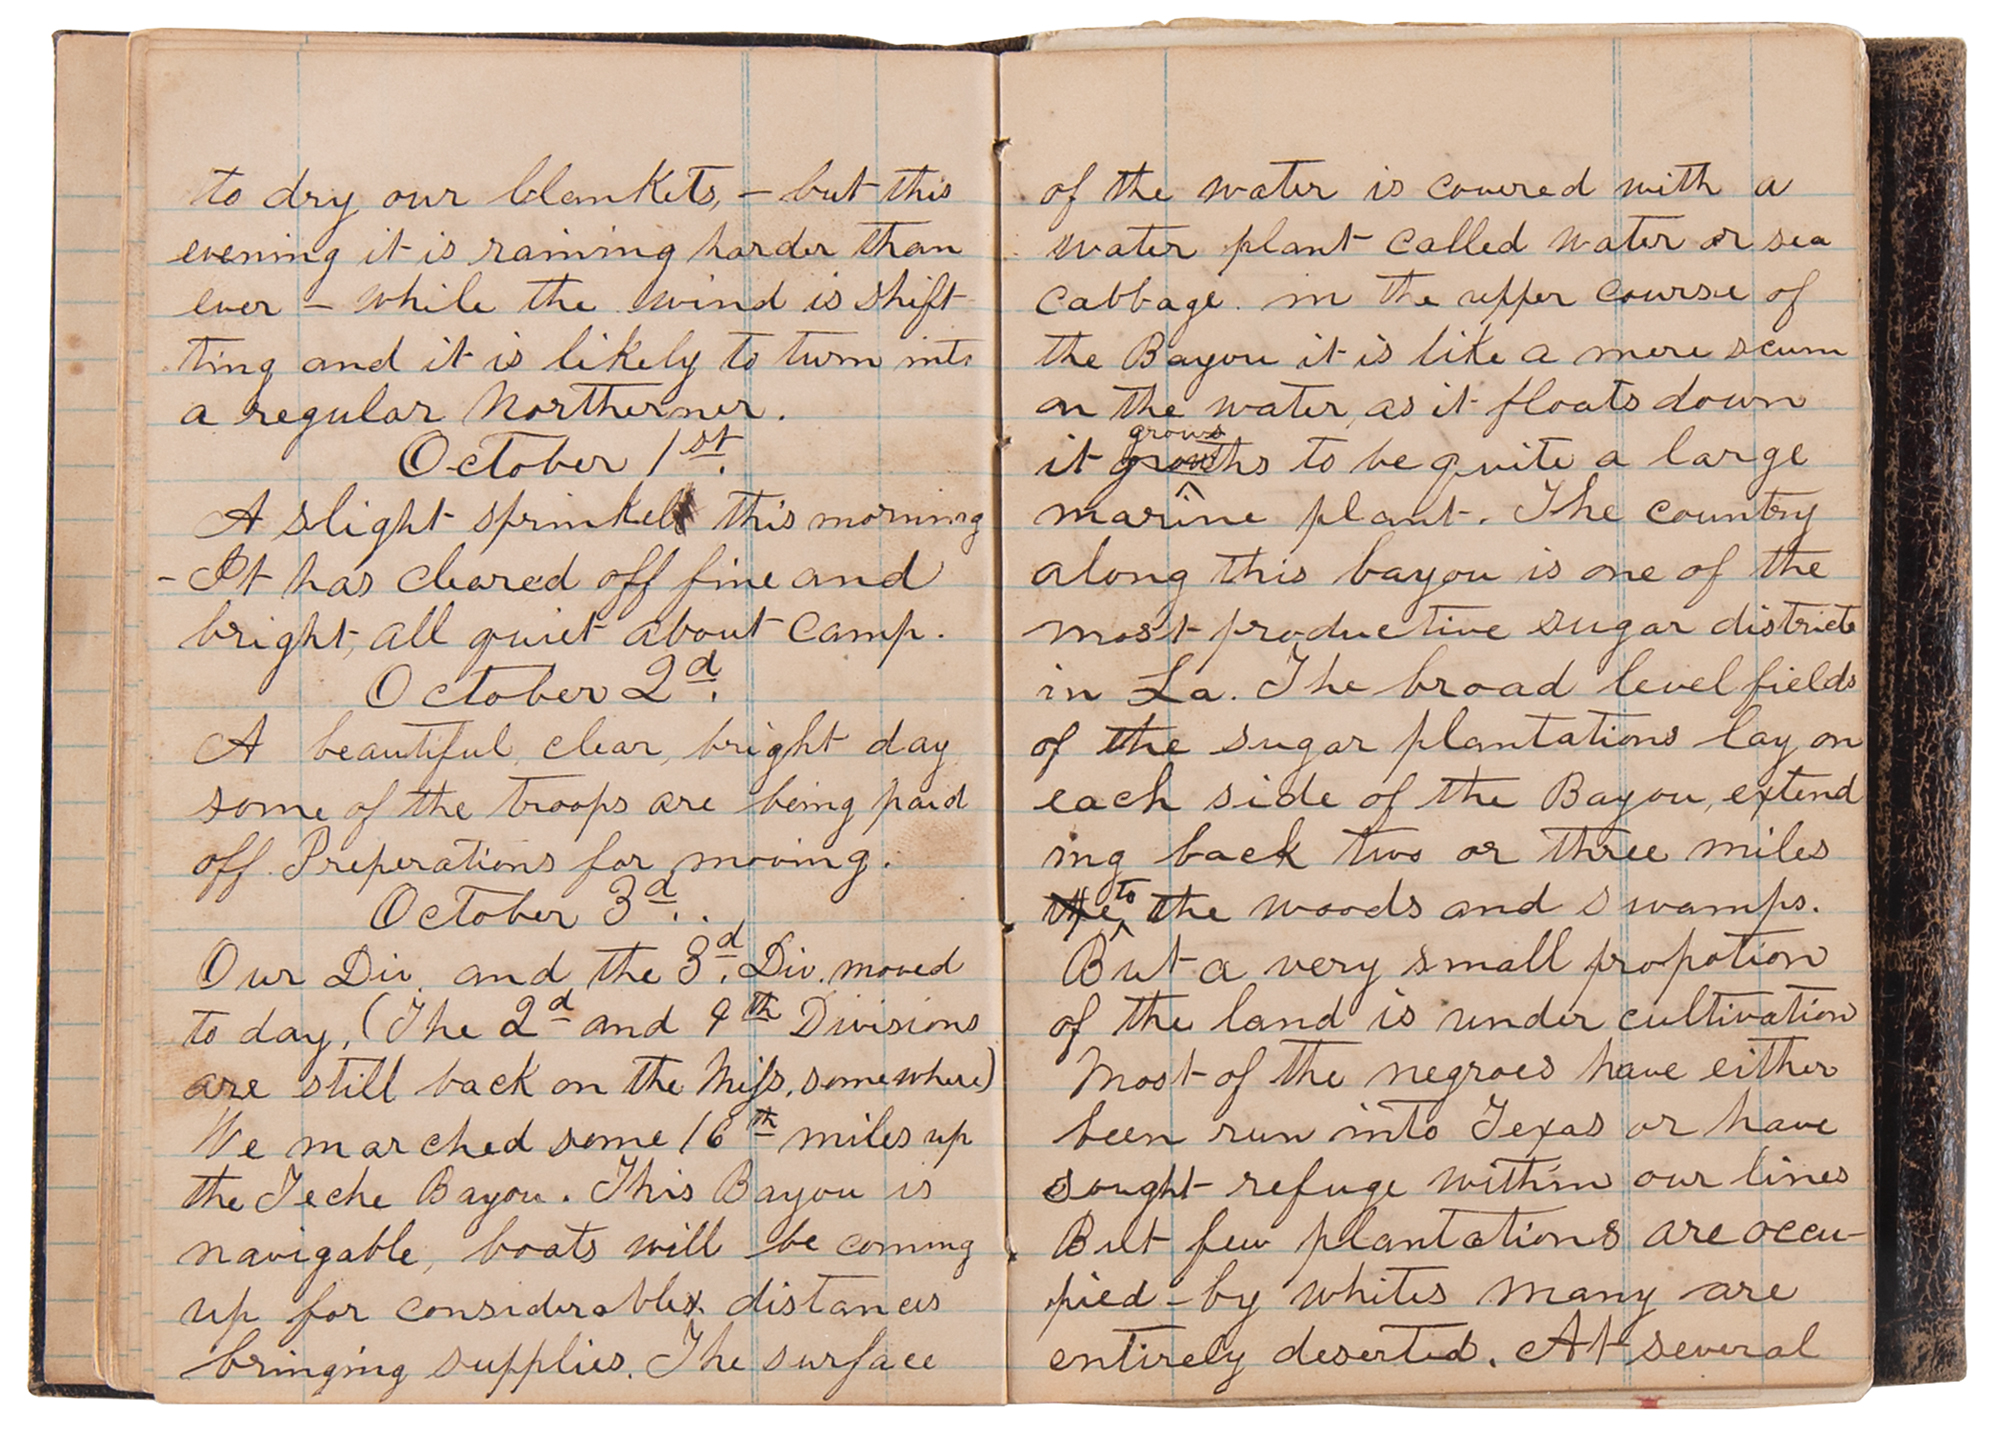 to dry our blankets, – but this
evening it is raining harder than
ever – while the wind is shift
ting and it is likely to turn into
a regular Northerner.
October 1st.
A slight sprinkel this morning
– It has cleared off fine and
bright, all quiet about camp.
October 2d.
A beautiful, clear, bright day
some of the troops are being paid
off. Preperations for moving.
October 3d..
Our Div. and the 3d. Div. moved
to day, (The 2d and 4th Divisions
are still back on the Miss. somewhere)
We marched some 16th miles up
the Teche Bayou. This Bayou is
navigable, boats will be coming
up for considerable distances
bringing supplies. The surface
of the water is covered with a
water plant called water or sea
cabbage. in the upper course of
the Bayou it is like a mere scum
on the water, as it floats down
grows
it growths to be quite a large
marine plant. The country
along this bayou is one of the
most productive sugar districts
in La. The broad level fields
of the sugar plantations lay on
each side of the Bayou, extend
ing back two or three miles
the to the woods and swamps.
But a very small propotion
of the land is under cultivation
Most of the negroes have either
been run into Texas or have
sought refuge within our lines
But few plantations are occu–
pied – by whites many are
entirely deserted. At several